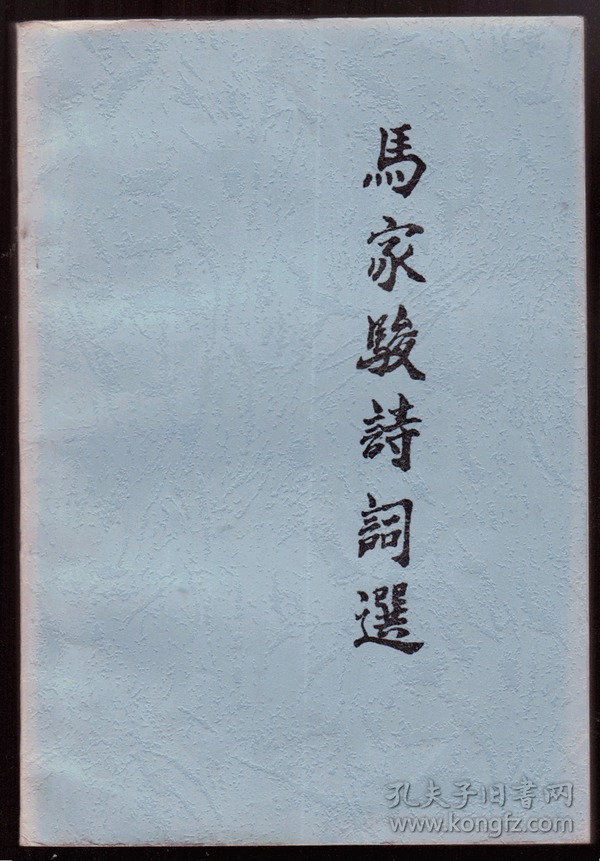 馬家駿詩詞選
孔夫子旧书网
www.kongfz.com